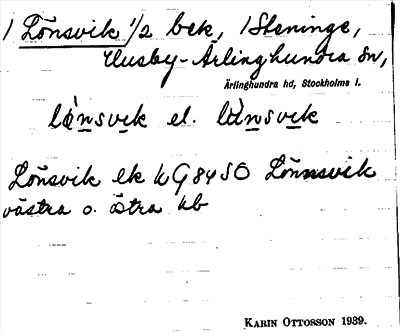 1 Lönsvik 1/2 bek, 1 Steninge,
Husby-Ärlinghundra sn,
Ärlinghundra hd, Stockholms l.
lònsvık el. lǜnsvık
Lönsvik ek KG 84 SO Lönnsvik
västra o. östra kb
KARIN OTTOSSON 1939.